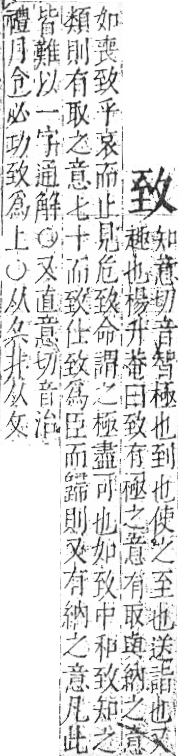 致
知意切音智極也到也使之至也送詣也又
趣也楊升菴曰致有極之意有取與納之意
如喪致乎哀而止見危致命謂之極盡可也如致中和致知之
類則有取之意七十而致仕致爲臣而歸則又有納之意凡此
皆難以一字通解○又直意切音治
禮月令必功致爲上○从夂非从攵